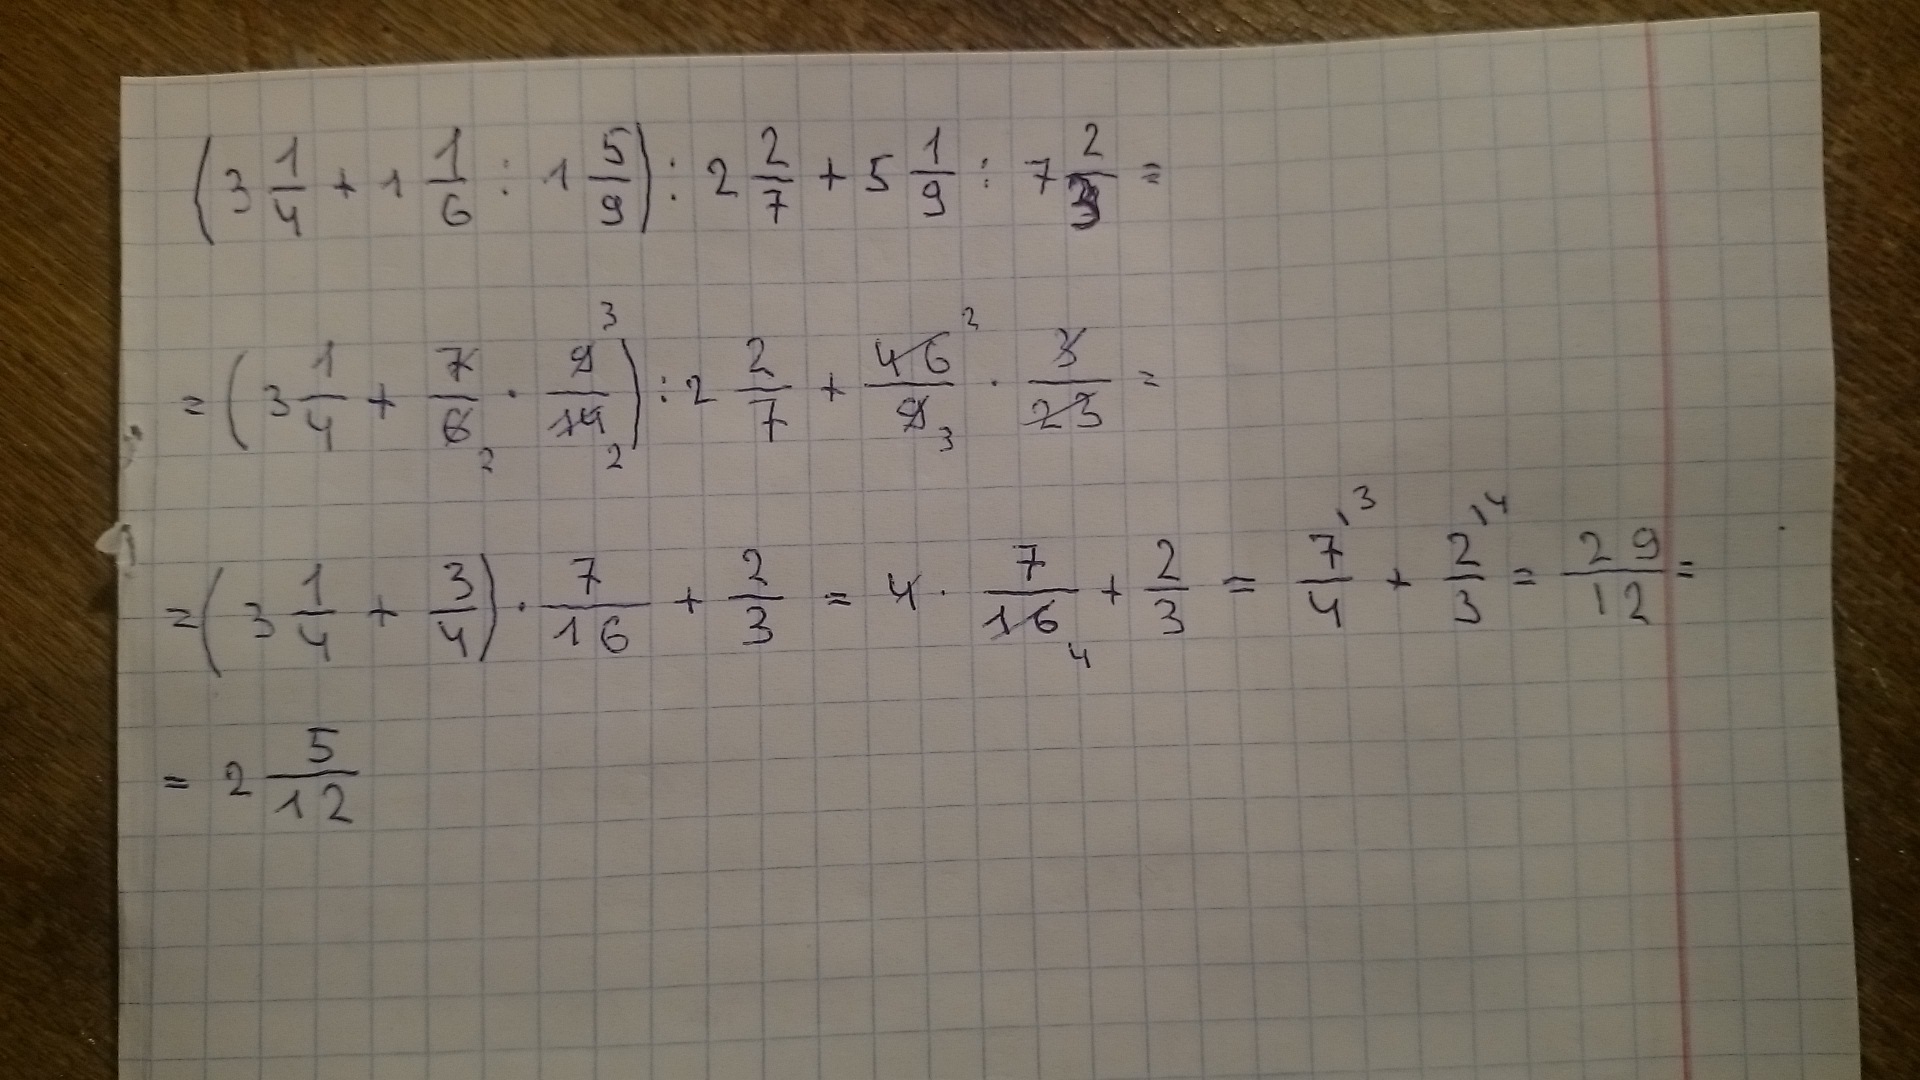 (3 1/4 + 1 1/6 : 1 5/9) : 2 2/7 + 5 1/9 : 7 2/3 =
= (3 1/4 + 7/6 2 · 9 3/14 2) : 2 2/7 + 46 2/9 3 · 3/23 =
= (3 1/4 + 3/4) · 7/16 + 2/3 = 4 · 7/16 4 + 2/3 = 7 ,3/4 + 2 ,4/3 = 29/12 =
= 2 5/12